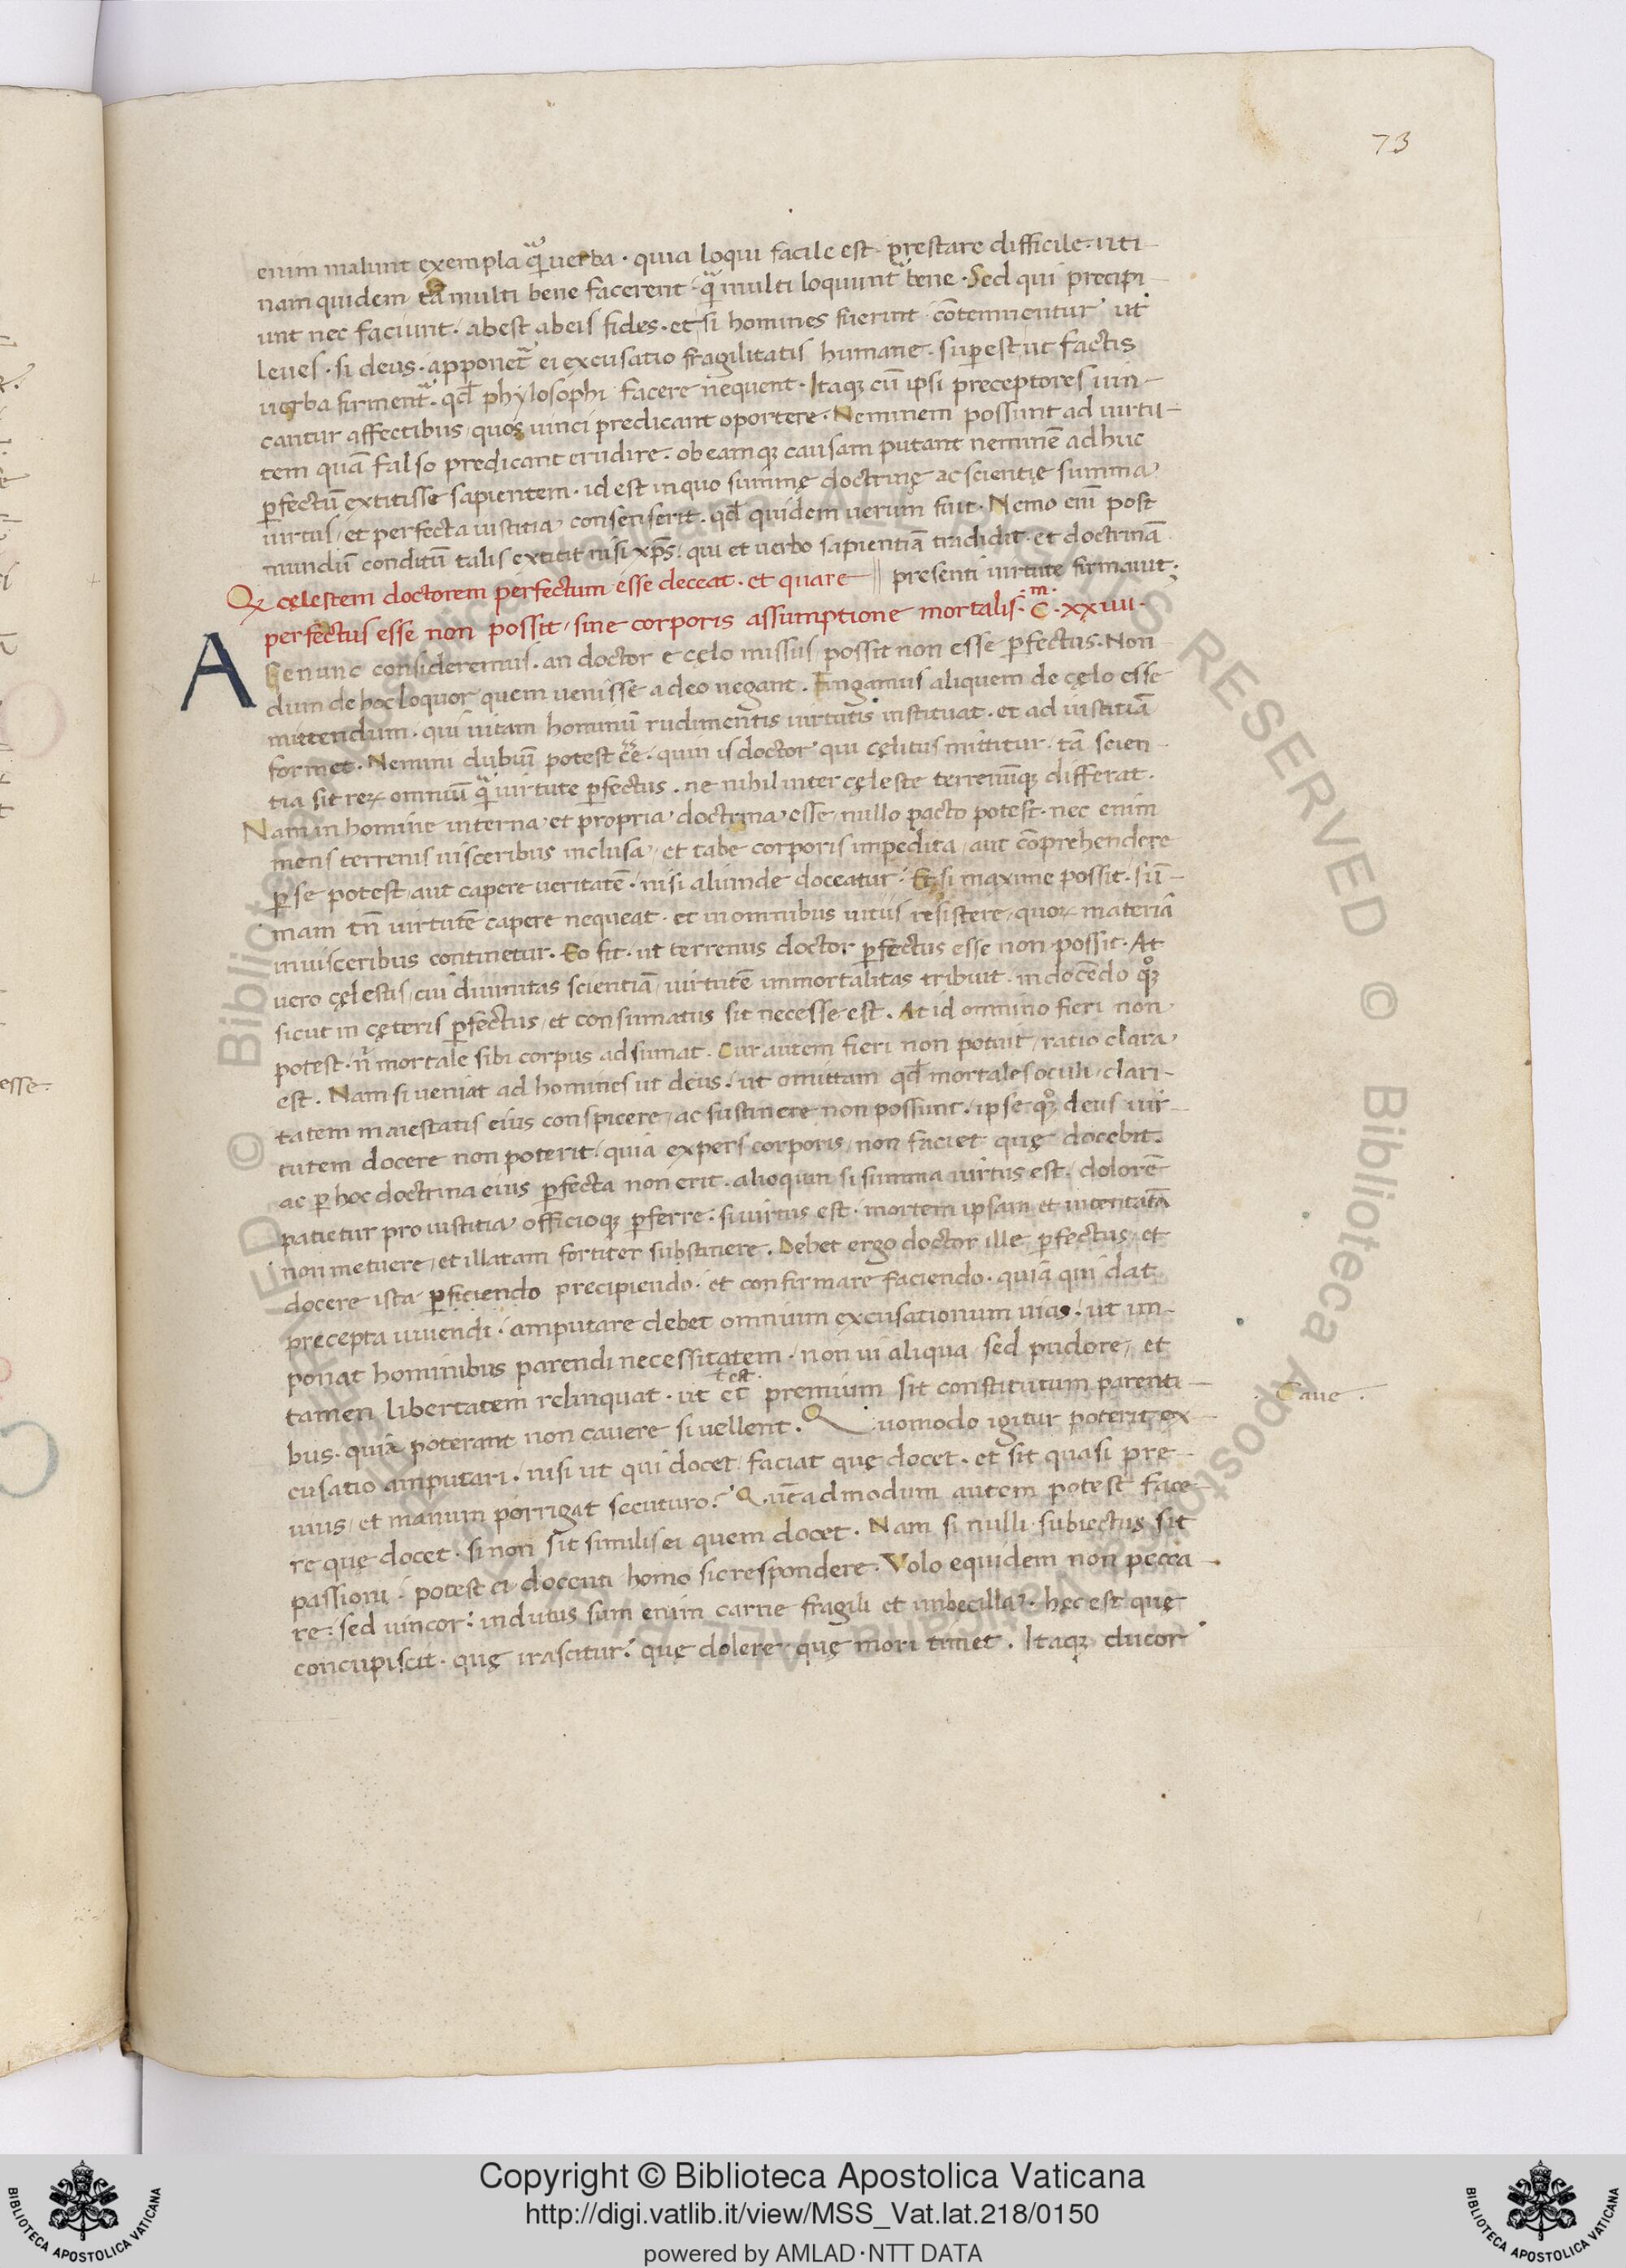 73
enim malunt exempla q̃ uerba. quia loqui facile est. prestare difficile. uti-
nam quidem tã multi bene facerent. q̃ multi loquunt̃ bene. Sed qui precipi-
unt nec faciunt. abest ab eis fides. et si homines fuerint contemnentur ut
leues. si deus. apponet̃ ei excusatio fragilitatis humane. superest ut factis
uerba firment̃. qđ phylosophi facere nequent. Itaq; cũ ipsi preceptores uin-
cantur affectibus quos uinci predicant oportere. Neminem possunt ad uirtu-
tem quã falso predicant erudire. ob eamq; causam putant neminẽ adhuc
ꝑfectũ extitisse sapientem. id est in quo summę doctrinę ac scientię summa
uirtus et perfecta iustitia consenserit. qđ quidem uerum fuit. Nemo eni͂ post
mundũ conditũ talis extitit nisi xp̃s. qui et uerbo sapientiã tradidit. et doctrinã
Q cęlestem doctorem perfectum esse deceat. et quare || presenti uirtute firmauit;
perfectus esse non possit, sine corporis assumptione mortalis. C.m XXIIII.
Age nunc consideremus. an doctor e cęlo missus possit non esse ꝑfectus. Non
dum de hoc loquor quem uenisse a deo negant. Fingamus aliquem de cęlo esse
mittendum. qui uitam hominũ rudimentis uirtutis instituat. et ad iustitiã
formet. Nemini dubiũ potest ẽe. quin is doctor qui cęlitus mittitur. tã scien-
tia sit reꝝ omniũ q̃ uirtute ꝑfectus. ne nihil inter cęleste terrenũq; differat.
Nam in homine interna et propria doctrina esse nullo pacto potest. nec enim
mens terrenis uisceribus inclusa, et tabe corporis impedita, aut cõprehendere
ꝑ se potest, aut capere ueritatẽ. nisi aliunde doceatur. Et si maxime possit. sũ-
mam tñ uirtutẽ capere nequeat. et in omnibus uitiis resistere, quoꝝ materia
in uisceribus continetur. Eo fit. ut terrenus doctor ꝑfectus esse non possit. At
uero cęlestis, cui diuinitas scientiã, uirtutẽ immortalitas tribuit. in docẽdo qͦꝗ
sicut in cęteris ꝑfectus, et consumatus sit necesse est. At id omnino fieri non
potest. ñ mortale sibi corpus adsumat. Cur autem fieri non potuit, ratio clara
est. Nam si ueniat ad homines ut deus. ut omittam qđ mortales oculi, clari-
tatem maiestatis eius conspicere, ac sustinere non possunt. ipse qͦꝗ deus uir-
tutem docere non poterit. quia expers corporis, non faciet quę docebit.
ac ꝑ hoc doctrina eius ꝑfecta non erit. alioquin si summa uirtus est. dolorẽ
patietur pro iustitia officioq; ꝑferre. si uirtus est. mortem ipsam et intentatã
non metuere, et illatam fortiter substinere. Debet ergo doctor ille ꝑfectus, et
docere ista ꝑficiendo precipiendo. et confirmare faciendo. quia qui dat
precepta uiuendi. amputare debet omnium excusationum uias. ut im-
ponat hominibus parendi necessitatem. non ui aliqua sed pudore, et
tamen libertatem relinquat. ut et ł est premium sit constitutum parenti-
bus. quia poterant non cauere si uellent. Quomodo igitur poterit ex-
Caue.
cusatio amputari. nisi ut qui docet faciat quę docet. et sit quasi pre-
uius, et manum porrigat secuturo? Quẽadmodum autem potest face-
re quę docet. si non sit similis ei quem docet. Nam si nulli subiectus sit
passioni. potest ei docenti homo sic respondere. Volo equidem non pecca-
re. sed uincor. indutus sum enim carne fragili et imbecilla. hęc est quę
concupiscit. quę irascitur. quę dolere quę mori timet. Itaq; ducor
esse.
Copyright © Biblioteca Apostolica Vaticana
http://digi.vatlib.it/view/MSS_Vat.lat.218/0150
powered by AMLAD·NTT DATA
BIBLIOTECA APOSTOLICA VATICANA
BIBLIOTECA APOSTOLICA VATICANA